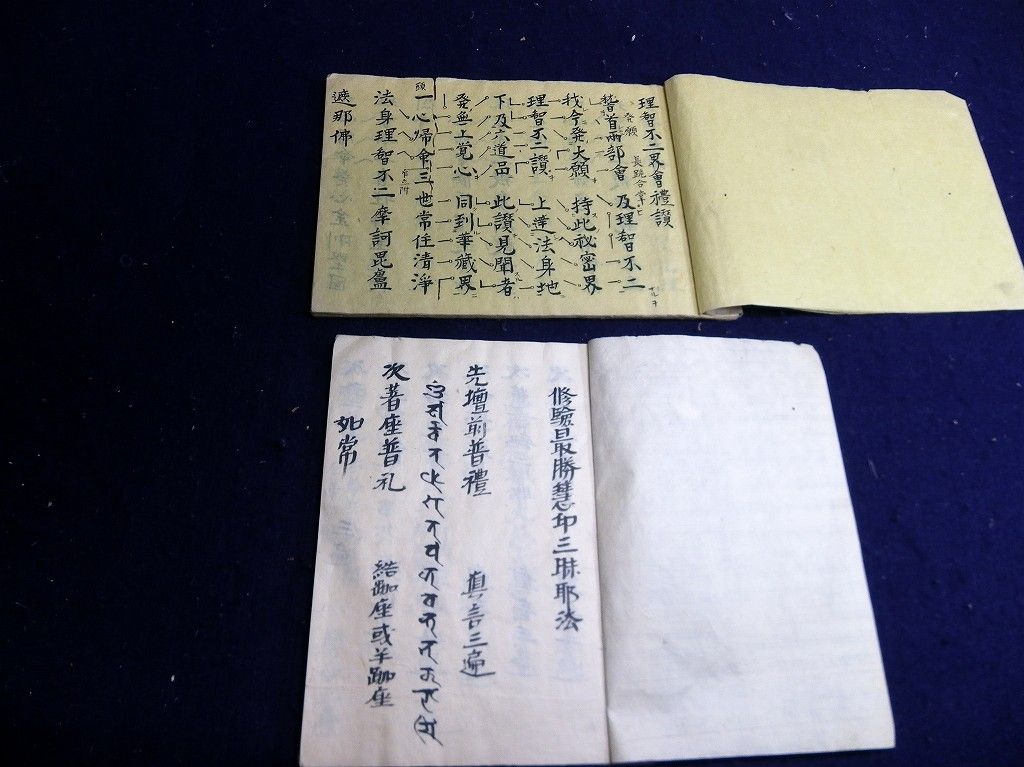 理智不二界會禮讃
發願 長跪合掌
稽首兩部會 及理智不二
我今發大願 持此祕密界
理智不二讃 上達法身地
下及六道品 此讃見聞者
發無上覚心 同到華藏界
頭
一心帰命三世常住清浄
法身理智不二摩訶毘盧
遮那佛
修驗最勝慧印三昧耶法
先壇前普禮 真言三遍
次著座普礼 結跏座或半跏座
如常